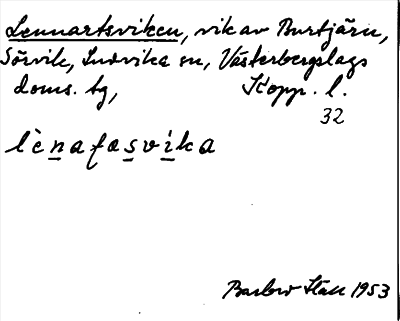 Lennartsviken, vik av Burtjärn,
Sörvik, Ludvika sn, Västerbergslags
doms. tg, Kopp. l.
32
lènafasvika
Barbro Ståll 1953